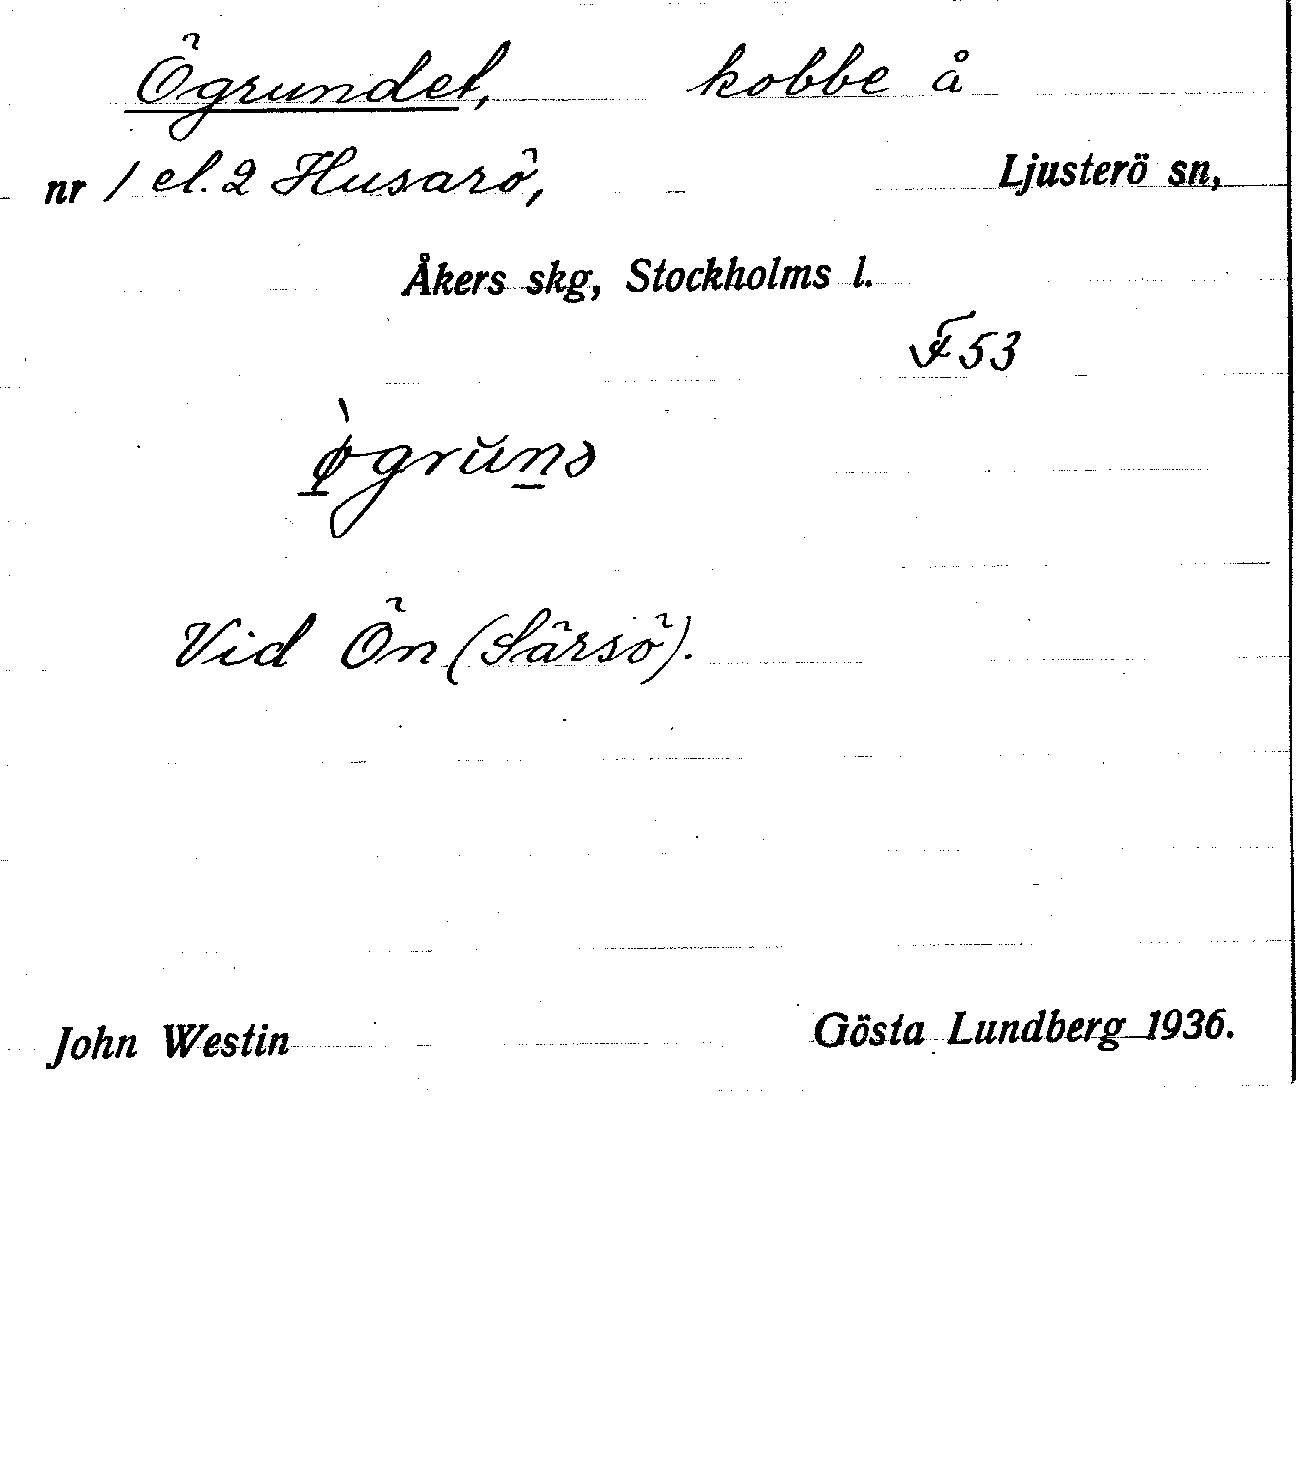 Ögrundet, kobbe å
nr 1 el. 2 Husarö, Ljusterö sn,
Åkers skg, Stockholms l.
F 53
ø̀grŭnə
Vid Ön (Särsö).
John Westin Gösta Lundberg 1936.